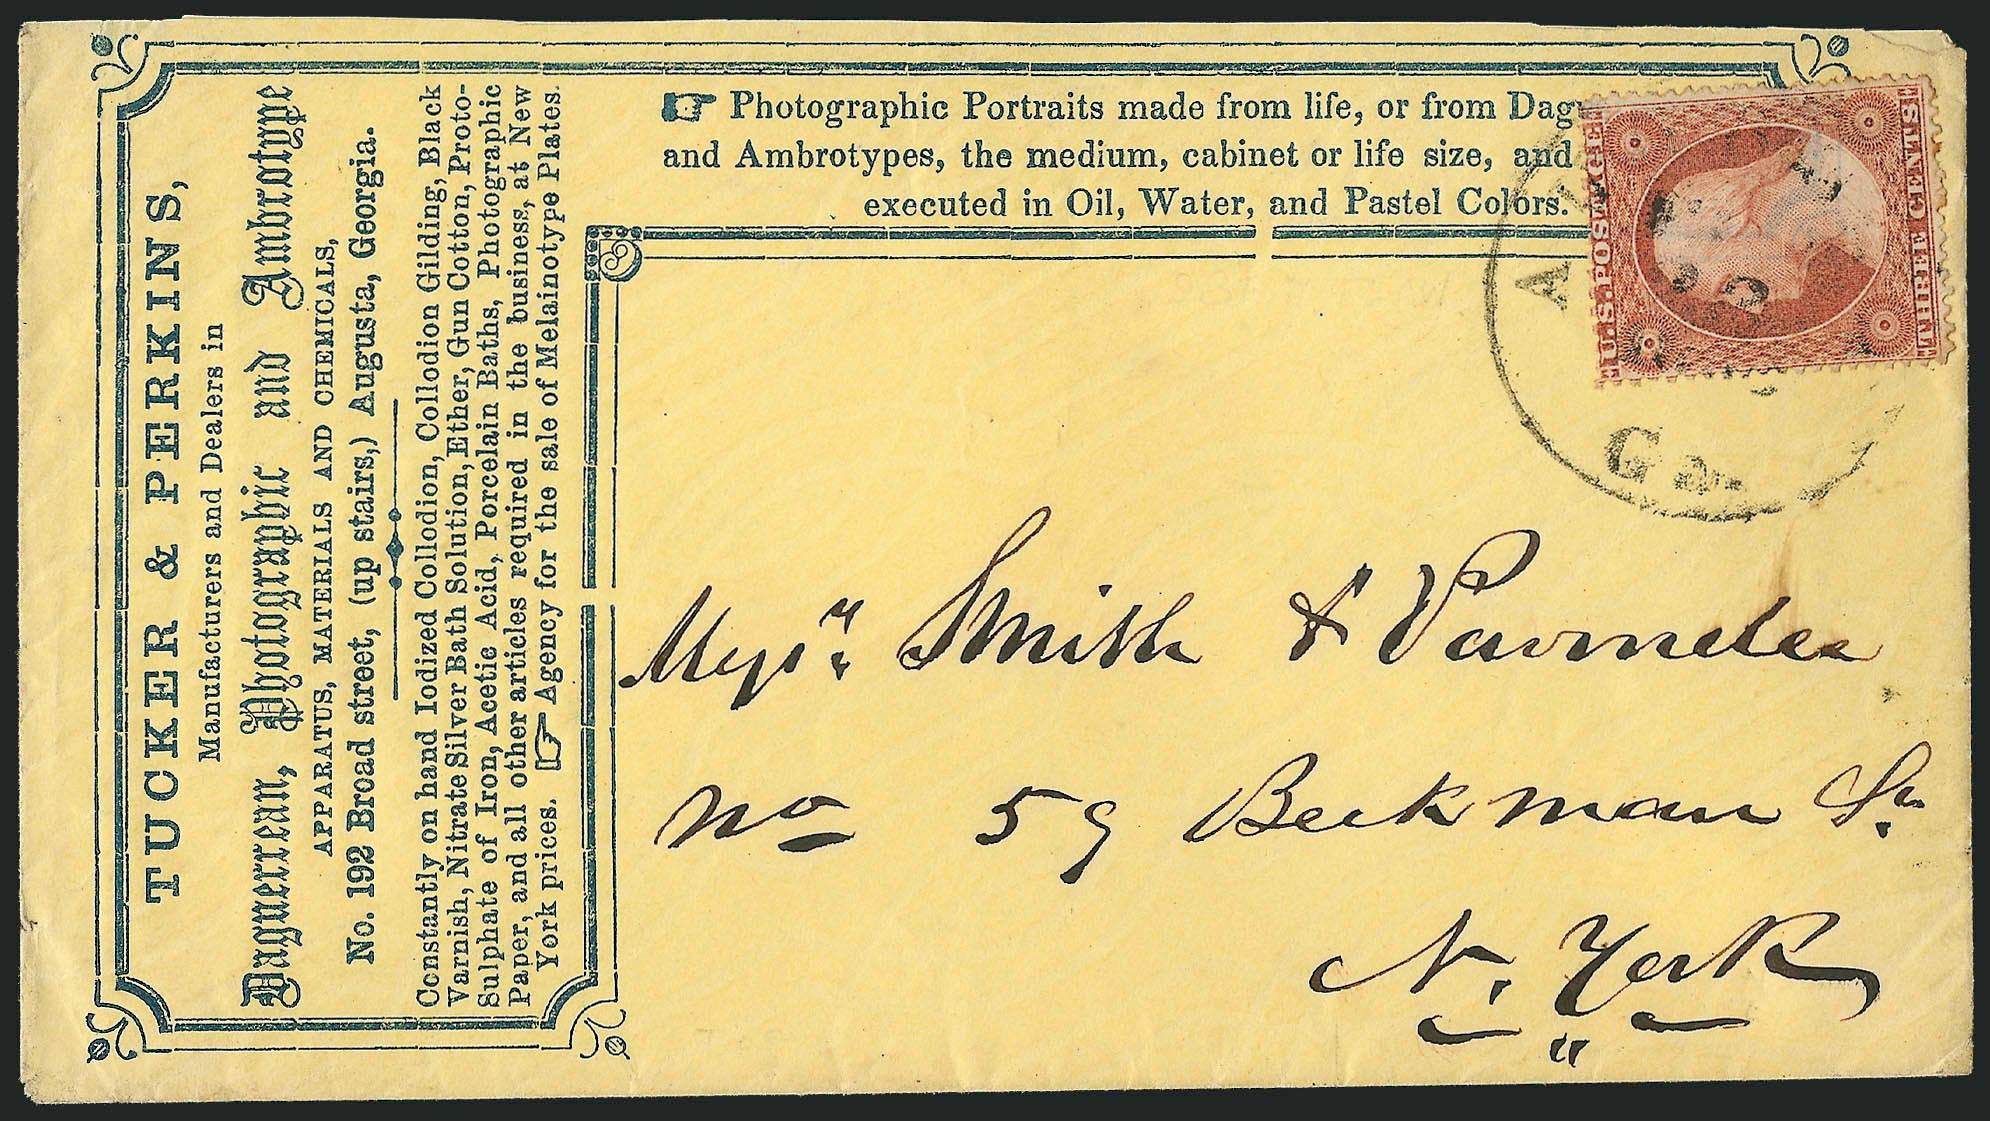 TUCKER & PERKINS,
Manufacturers and Dealers in
Daguerrean, Photographic and Ambrotype
APPARATUS, MATERIALS AND CHEMICALS,
No. 192 Broad street, (up stairs,) Augusta, Georgia.
Constantly on hand Iodized Collodion, Collodion Gilding, Black
Varnish, Nitrate Silver Bath Solution, Ether, Gun Cotton, Proto-
Sulphate of Iron, Acetic Acid, Porcelain Baths, Photographic
Paper, and all other articles required in the business, at New
York prices. ☞ Agency for the sale of Melainotype Plates.
☛ Photographic Portraits made from life, or from Dagu
and Ambrotypes, the medium, cabinet or life size, and
executed in Oil, Water, and Pastel Colors.
U.S. POSTAGE
THREE CENTS
Ga
Messrs. Smith & Parmelee
No 59 Beekman St.
N. York